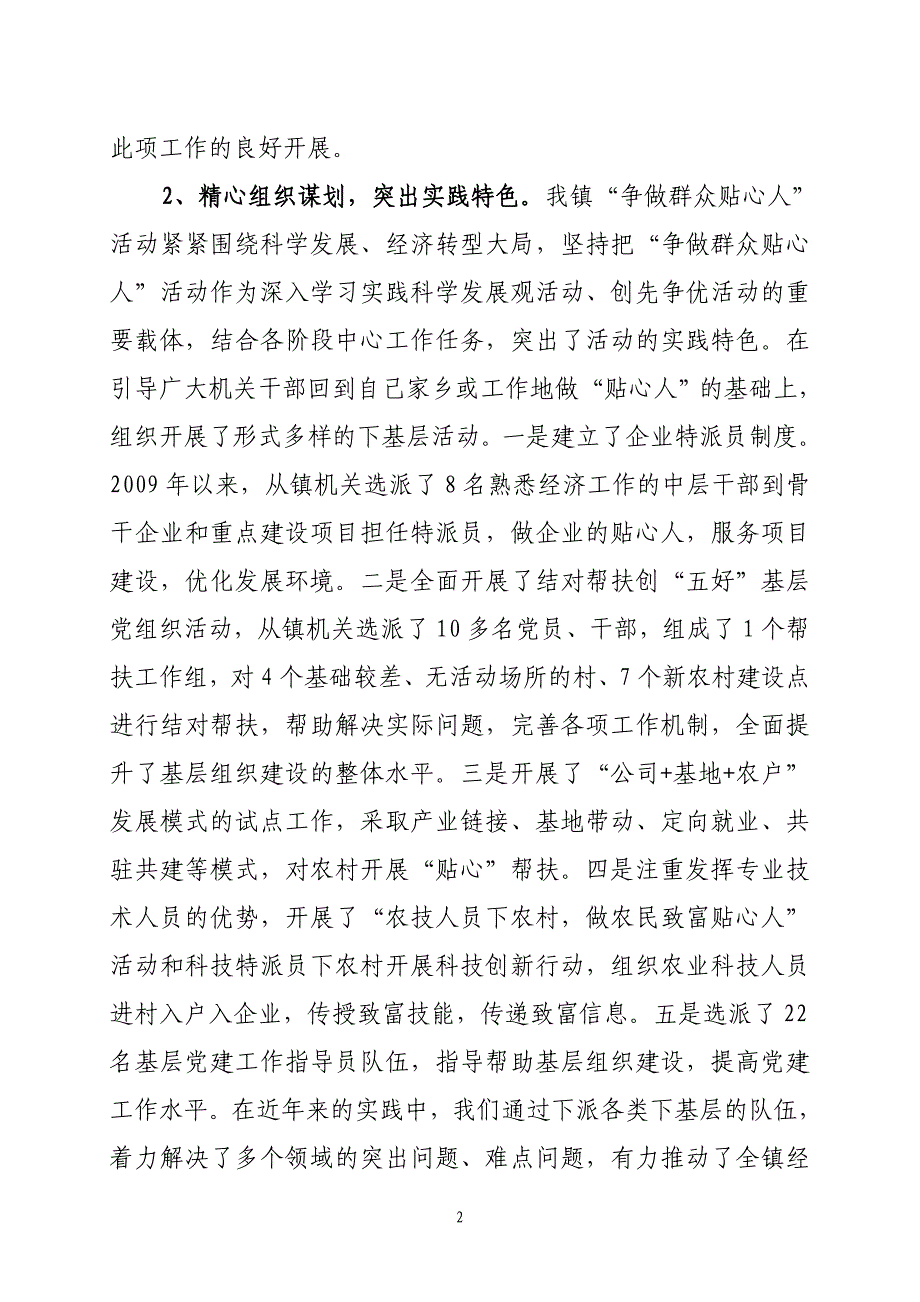 此项工作的良好开展。
2、精心组织谋划，突出实践特色。我镇“争做群众贴心人”
活动紧紧围绕科学发展、经济转型大局，坚持把“争做群众贴心
人”活动作为深入学习实践科学发展观活动、创先争优活动的重
要载体，结合各阶段中心工作任务，突出了活动的实践特色。在
引导广大机关干部回到自己家乡或工作地做“贴心人”的基础上，
组织开展了形式多样的下基层活动。一是建立了企业特派员制度。
2009 年以来，从镇机关选派了 8 名熟悉经济工作的中层干部到骨
干企业和重点建设项目担任特派员，做企业的贴心人，服务项目
建设，优化发展环境。二是全面开展了结对帮扶创“五好”基层
党组织活动，从镇机关选派了 10 多名党员、干部，组成了 1 个帮
扶工作组，对 4 个基础较差、无活动场所的村、7 个新农村建设点
进行结对帮扶，帮助解决实际问题，完善各项工作机制，全面提
升了基层组织建设的整体水平。三是开展了“公司+基地+农户”
发展模式的试点工作，采取产业链接、基地带动、定向就业、共
驻共建等模式，对农村开展“贴心”帮扶。四是注重发挥专业技
术人员的优势，开展了“农技人员下农村，做农民致富贴心人”
活动和科技特派员下农村开展科技创新行动，组织农业科技人员
进村入户入企业，传授致富技能，传递致富信息。五是选派了 22
名基层党建工作指导员队伍，指导帮助基层组织建设，提高党建
工作水平。在近年来的实践中，我们通过下派各类下基层的队伍，
着力解决了多个领域的突出问题、难点问题，有力推动了全镇经
2